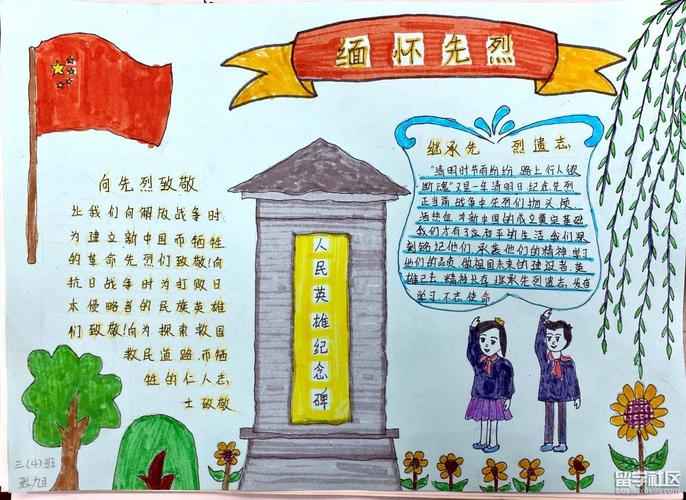 缅怀先烈
向先烈致敬
让我们向解放战争时
为建立新中国而牺牲
的革命先烈们致敬!向
抗日战争时为打败日
本侵略者的民族英雄
们致敬!向为探索救国
救民道路,而牺
牲的仁人志
士致敬
人民英雄纪念碑
继承先 烈遗志
"清明时节雨纷纷 路上行人欲
断魂"又是一年清明日 纪念先烈
正当前 战争中先烈们抛头颅
洒热血 才新中国的成立奠定基础
我们才有了幸福和平的生活 我们要
刻铭记他们 承袭他们的精神 学习
他们的品质 做祖国未来的建设者 英
雄已去 精神长存 继承先烈遗志
学习 不忘使命
三(4)班
留学社区